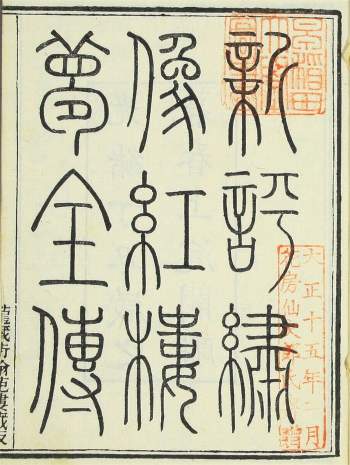 新評繡
像紅樓
夢全傳
大正十五年 月